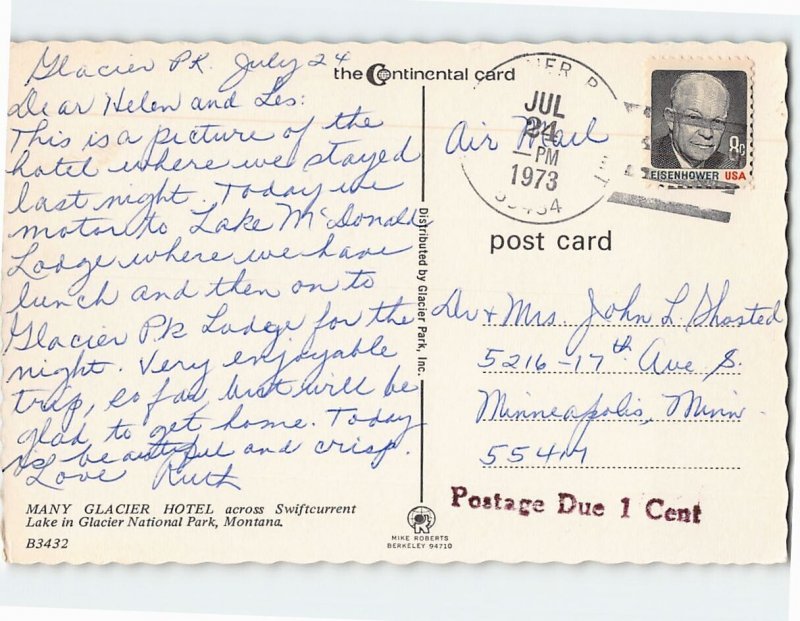 Glacier Pk. July 24
Dear Helen and Les:
This is a picture of the
hotel where we stayed
last night. Today we
motor to Lake McDonald
Lodge where we have
lunch and then on to
Glacier Pk Lodge for the
night. Very enjoyable
trip, so far but will be
glad to get home. Today
is beautiful and crisp.
Love Ruth
MANY GLACIER HOTEL across Swiftcurrent
Lake in Glacier National Park, Montana.
B3432
the Continental card
Distributed by Glacier Park, Inc.
MIKE ROBERTS
BERKELEY 94710
Air Mail
JUL
24
PM
1973
8c
EISENHOWER USA
post card
Dr & Mrs. John L. Shosted
5216-17th Ave S.
Minneapolis, Minn.
55417
Postage Due 1 Cent